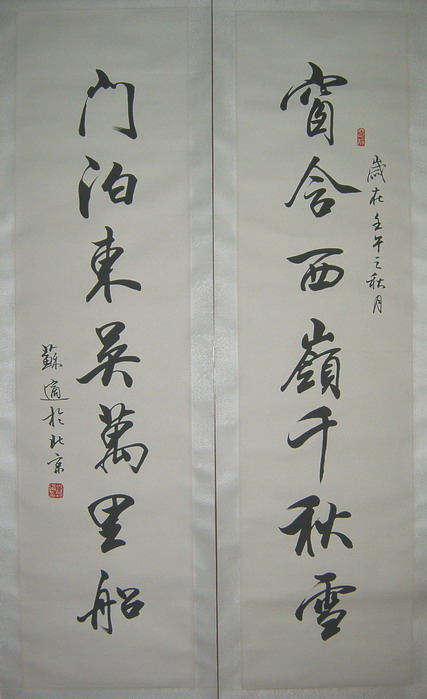 窗含西嶺千秋雪
歲在壬午之秋月
門泊東吳萬里船
蘇適於北京